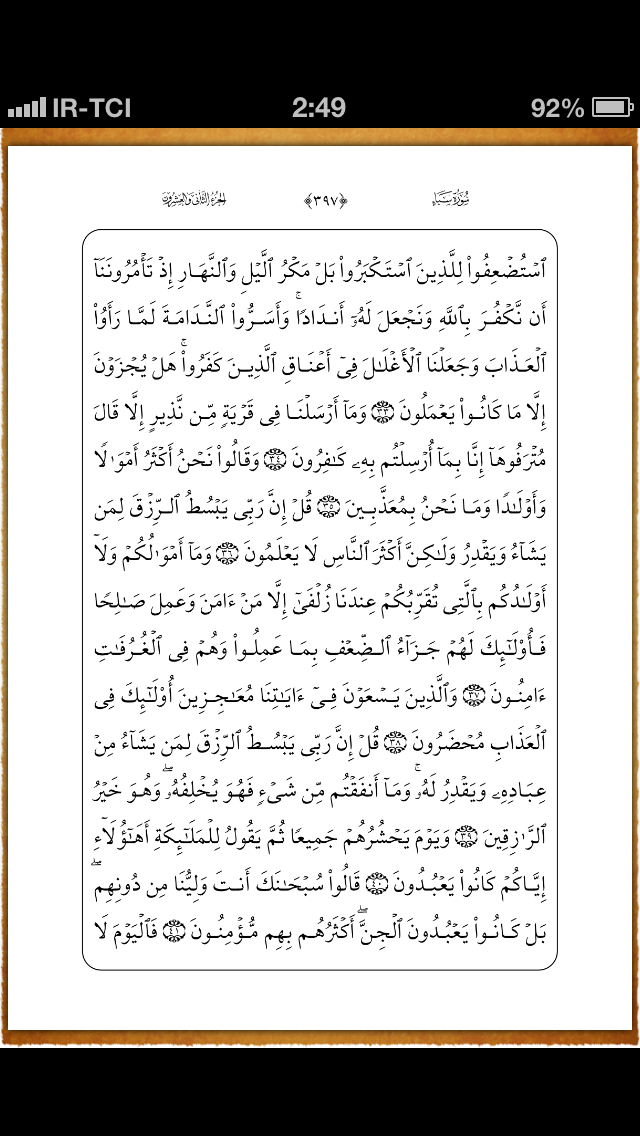 IR-TCI 2:49 92%
سُورَةُ سَبَإٍ ﴿٣٩٧﴾ الجُزءُ الثَّانِي وَالعِشرُونَ
ٱسْتُضْعِفُوا۟ لِلَّذِينَ ٱسْتَكْبَرُوا۟ بَلْ مَكْرُ ٱلَّيْلِ وَٱلنَّهَارِ إِذْ تَأْمُرُونَنَآ
أَن نَّكْفُرَ بِٱللَّهِ وَنَجْعَلَ لَهُۥٓ أَندَادًا ۚ وَأَسَرُّوا۟ ٱلنَّدَامَةَ لَمَّا رَأَوُا۟
ٱلْعَذَابَ وَجَعَلْنَا ٱلْأَغْلَـٰلَ فِىٓ أَعْنَاقِ ٱلَّذِينَ كَفَرُوا۟ ۚ هَلْ يُجْزَوْنَ
إِلَّا مَا كَانُوا۟ يَعْمَلُونَ ٣٣ وَمَآ أَرْسَلْنَا فِى قَرْيَةٍ مِّن نَّذِيرٍ إِلَّا قَالَ
مُتْرَفُوهَآ إِنَّا بِمَآ أُرْسِلْتُم بِهِۦ كَـٰفِرُونَ ٣٤ وَقَالُوا۟ نَحْنُ أَكْثَرُ أَمْوَٰلًا
وَأَوْلَـٰدًا وَمَا نَحْنُ بِمُعَذَّبِينَ ٣٥ قُلْ إِنَّ رَبِّى يَبْسُطُ ٱلرِّزْقَ لِمَن
يَشَآءُ وَيَقْدِرُ وَلَـٰكِنَّ أَكْثَرَ ٱلنَّاسِ لَا يَعْلَمُونَ ٣٦ وَمَآ أَمْوَٰلُكُمْ وَلَآ
أَوْلَـٰدُكُم بِٱلَّتِى تُقَرِّبُكُمْ عِندَنَا زُلْفَىٰٓ إِلَّا مَنْ ءَامَنَ وَعَمِلَ صَـٰلِحًا
فَأُو۟لَـٰٓئِكَ لَهُمْ جَزَآءُ ٱلضِّعْفِ بِمَا عَمِلُوا۟ وَهُمْ فِى ٱلْغُرُفَـٰتِ
ءَامِنُونَ ٣٧ وَٱلَّذِينَ يَسْعَوْنَ فِىٓ ءَايَـٰتِنَا مُعَـٰجِزِينَ أُو۟لَـٰٓئِكَ فِى
ٱلْعَذَابِ مُحْضَرُونَ ٣٨ قُلْ إِنَّ رَبِّى يَبْسُطُ ٱلرِّزْقَ لِمَن يَشَآءُ مِنْ
عِبَادِهِۦ وَيَقْدِرُ لَهُۥ ۚ وَمَآ أَنفَقْتُم مِّن شَىْءٍ فَهُوَ يُخْلِفُهُۥ ۖ وَهُوَ خَيْرُ
ٱلرَّٰزِقِينَ ٣٩ وَيَوْمَ يَحْشُرُهُمْ جَمِيعًا ثُمَّ يَقُولُ لِلْمَلَـٰٓئِكَةِ أَهَـٰٓؤُلَآءِ
إِيَّاكُمْ كَانُوا۟ يَعْبُدُونَ ٤٠ قَالُوا۟ سُبْحَـٰنَكَ أَنتَ وَلِيُّنَا مِن دُونِهِم ۖ
بَلْ كَانُوا۟ يَعْبُدُونَ ٱلْجِنَّ ۖ أَكْثَرُهُم بِهِم مُّؤْمِنُونَ ٤١ فَٱلْيَوْمَ لَا